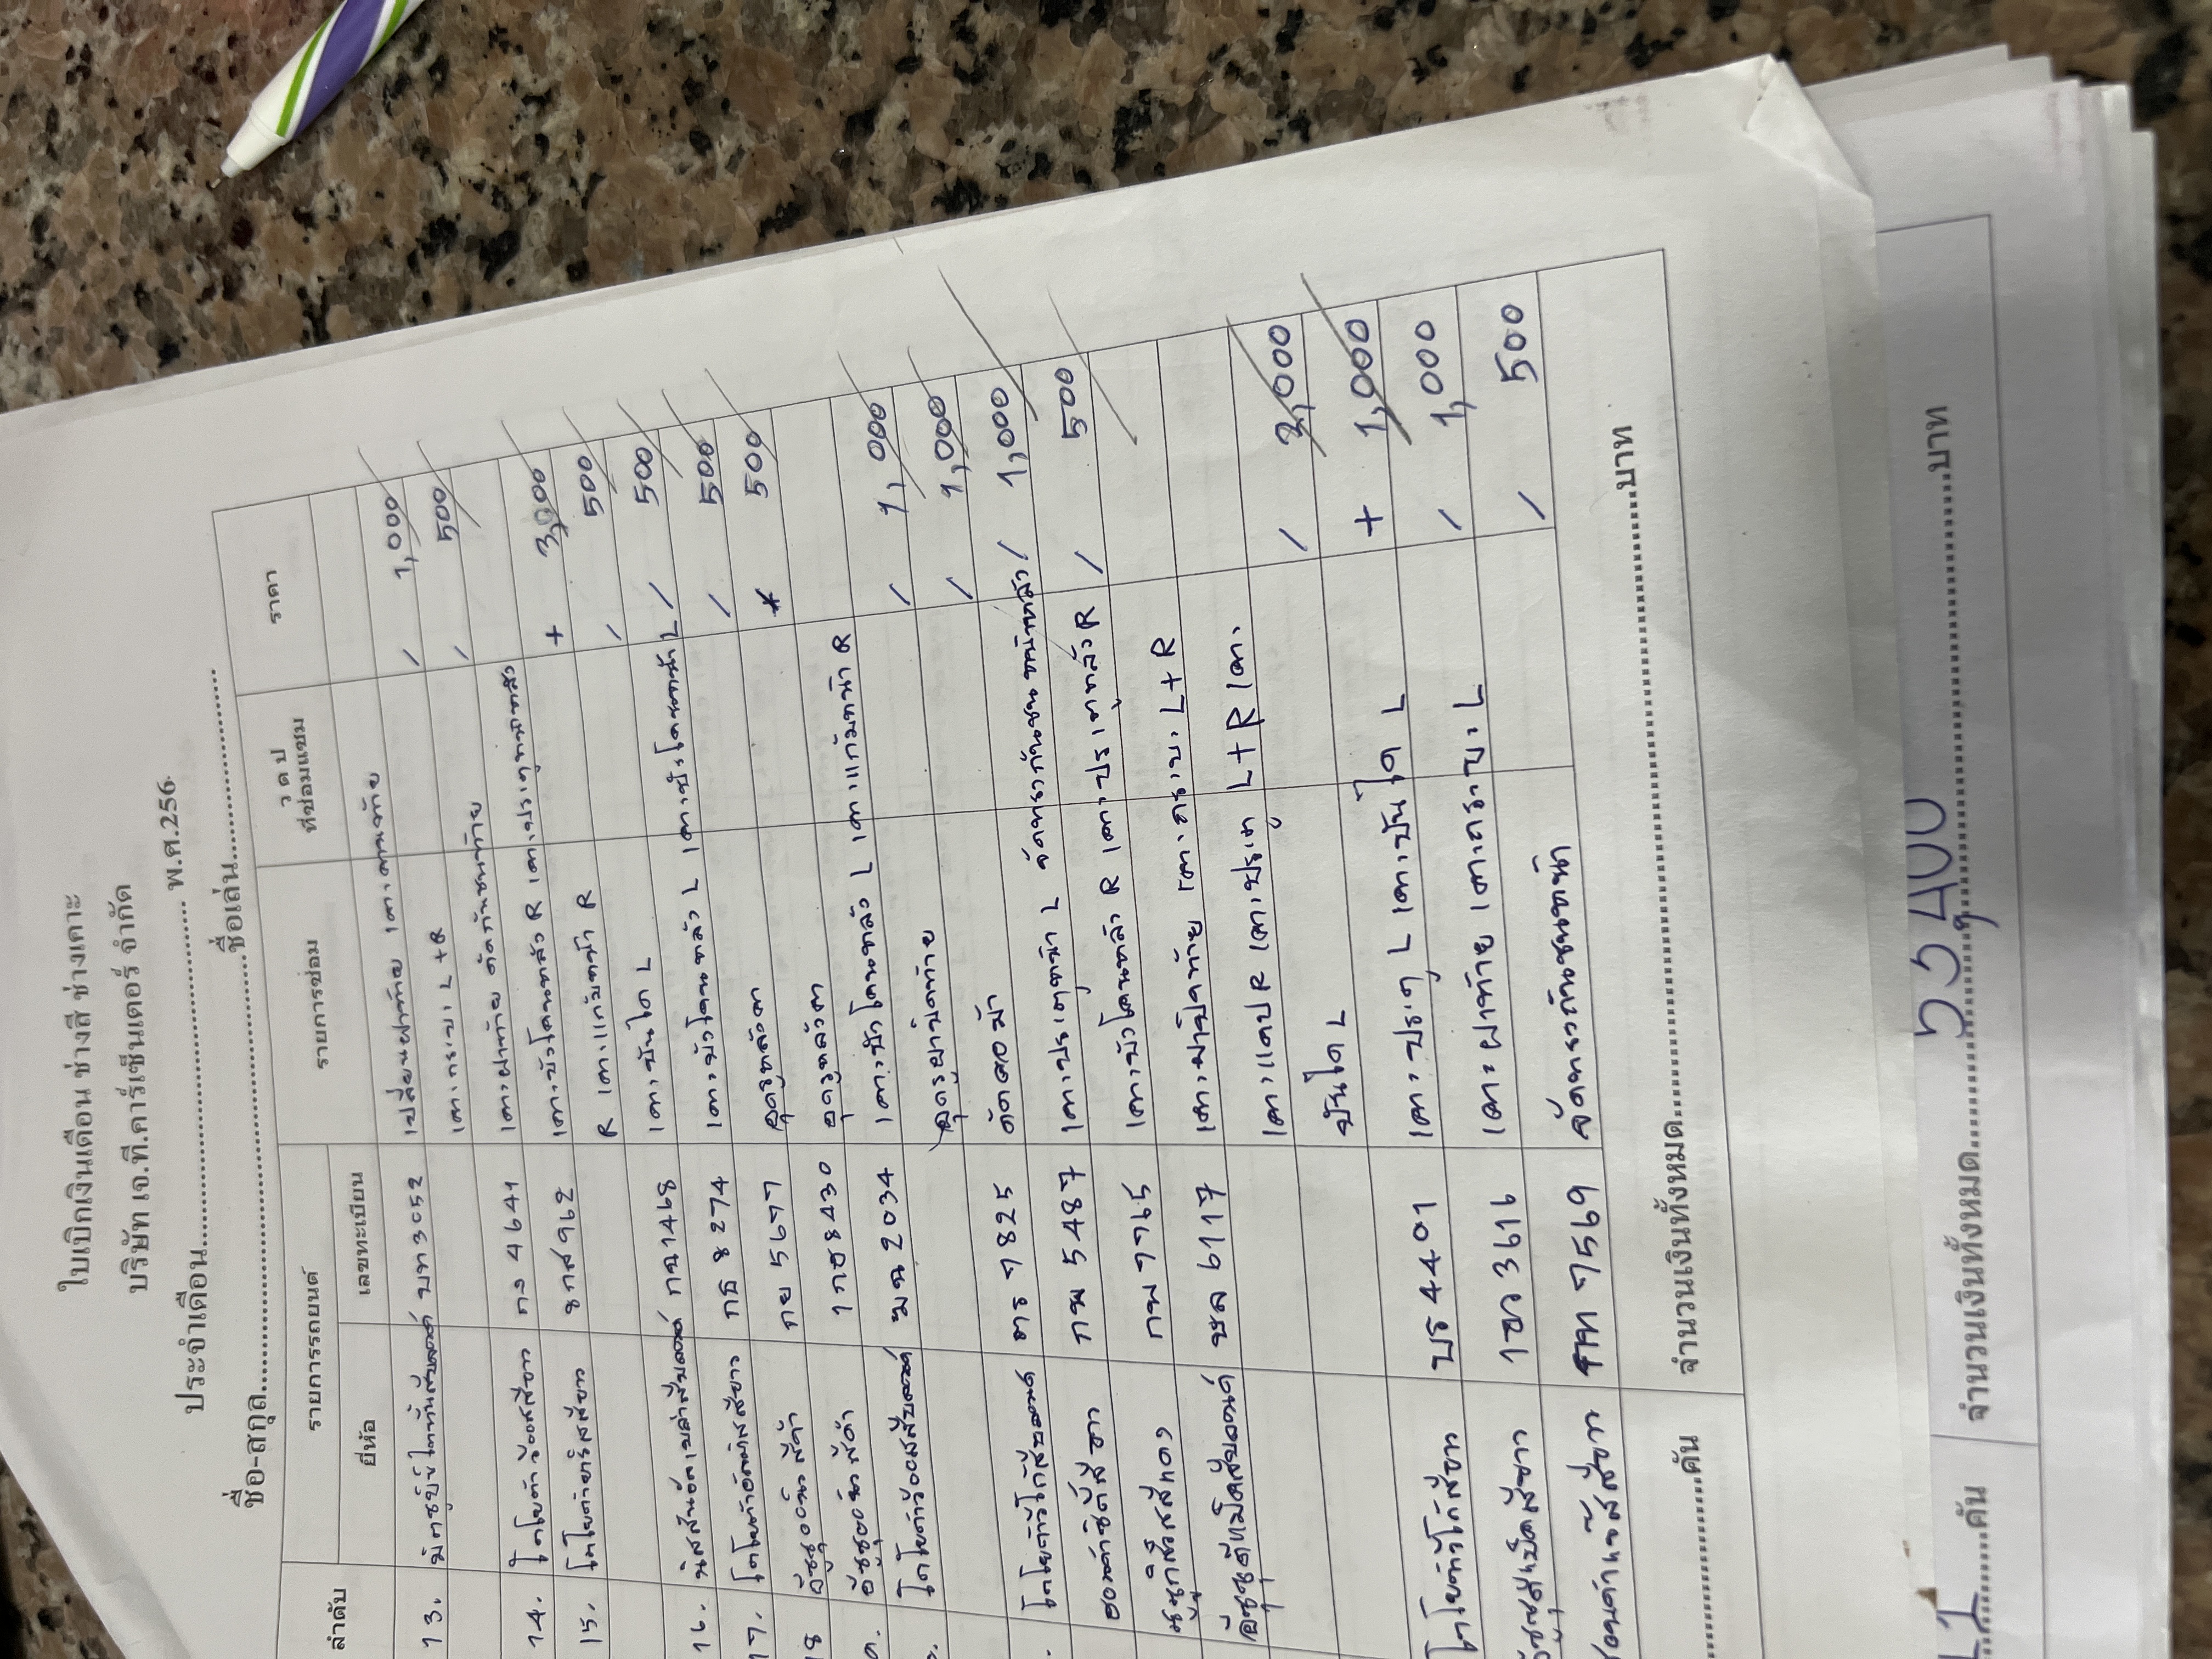 ใบเบิกเงินเดือน ช่างสี ช่างเคาะ
บริษัท เจ.ที.คาร์เซ็นเตอร์ จำกัด
ประจำเดือน.......................................... พ.ศ.256
ชื่อ-สกุล..........................................ชื่อเล่น..........................
ลำดับ รายการรถยนต์ รายการซ่อม ว ด ป ที่ซ่อมแซม ราคา
ยี่ห้อ เลขทะเบียน
13. บท 3052 เปลี่ยนฝาท้าย เคาะคานท้าย / 1,000
เคาะกระบะ L+R / 500
14. โตโยต้าวีออสสีขาว กง 4641 เคาะฝาท้าย ดัดกันชนท้าย
15. โตโยต้ายาริสสีขาว ขกส 962 เคาะบังโคลนหลัง R เคาะประตูหน้าหลัง + 3,000
R เคาะแก้มหน้า R / 500
เคาะบันได L / 500
16. กฉ 1468 เคาะบังโคลนหลัง L เคาะบังโคลนหน้า L / 500
17. กธ 8274 อุดรูหลังคา / 500
18 อีซูซุ กย 5677 อุดรูหลังคา * 500
อีซูซุ 1กฮ 8430 เคาะบังโคลนหลัง L เคาะแก้มหน้า R
โตโยต้าวีออสสีบรอนด์ ฆฉ 2034 อุดรูฝาปิดท้าย / 1,000
ดัดคอม้า / 1,000
โตโยต้าวีโก้สีบรอนด์ ตร 9825 เคาะประตูหน้า L / 1,000
ฮอนด้าซิตี้สีขาว กพ 5487 เคาะบังโคลนหลัง R เคาะประตูหลัง R / 500
กพ 7765 เคาะฝาปิดท้าย เคาะกระบะ L+R
ชล 6117 เคาะแคป R เคาะประตู L+R เคาะ
บันได L / 2,000
+ 1,000
โตโยต้าวีโก้สีขาว บร 4401 เคาะประตู L เคาะบันได L / 1,000
1ขว 3616 เคาะฝาท้าย เคาะกระบะ L / 500
ฮอนด้าแจ๊สสีขาว 7569 ดัดทรงกันชนหน้า
..........................คัน จำนวนเงินทั้งหมด..........................บาท
..........คัน จำนวนเงินทั้งหมด..........................บาท